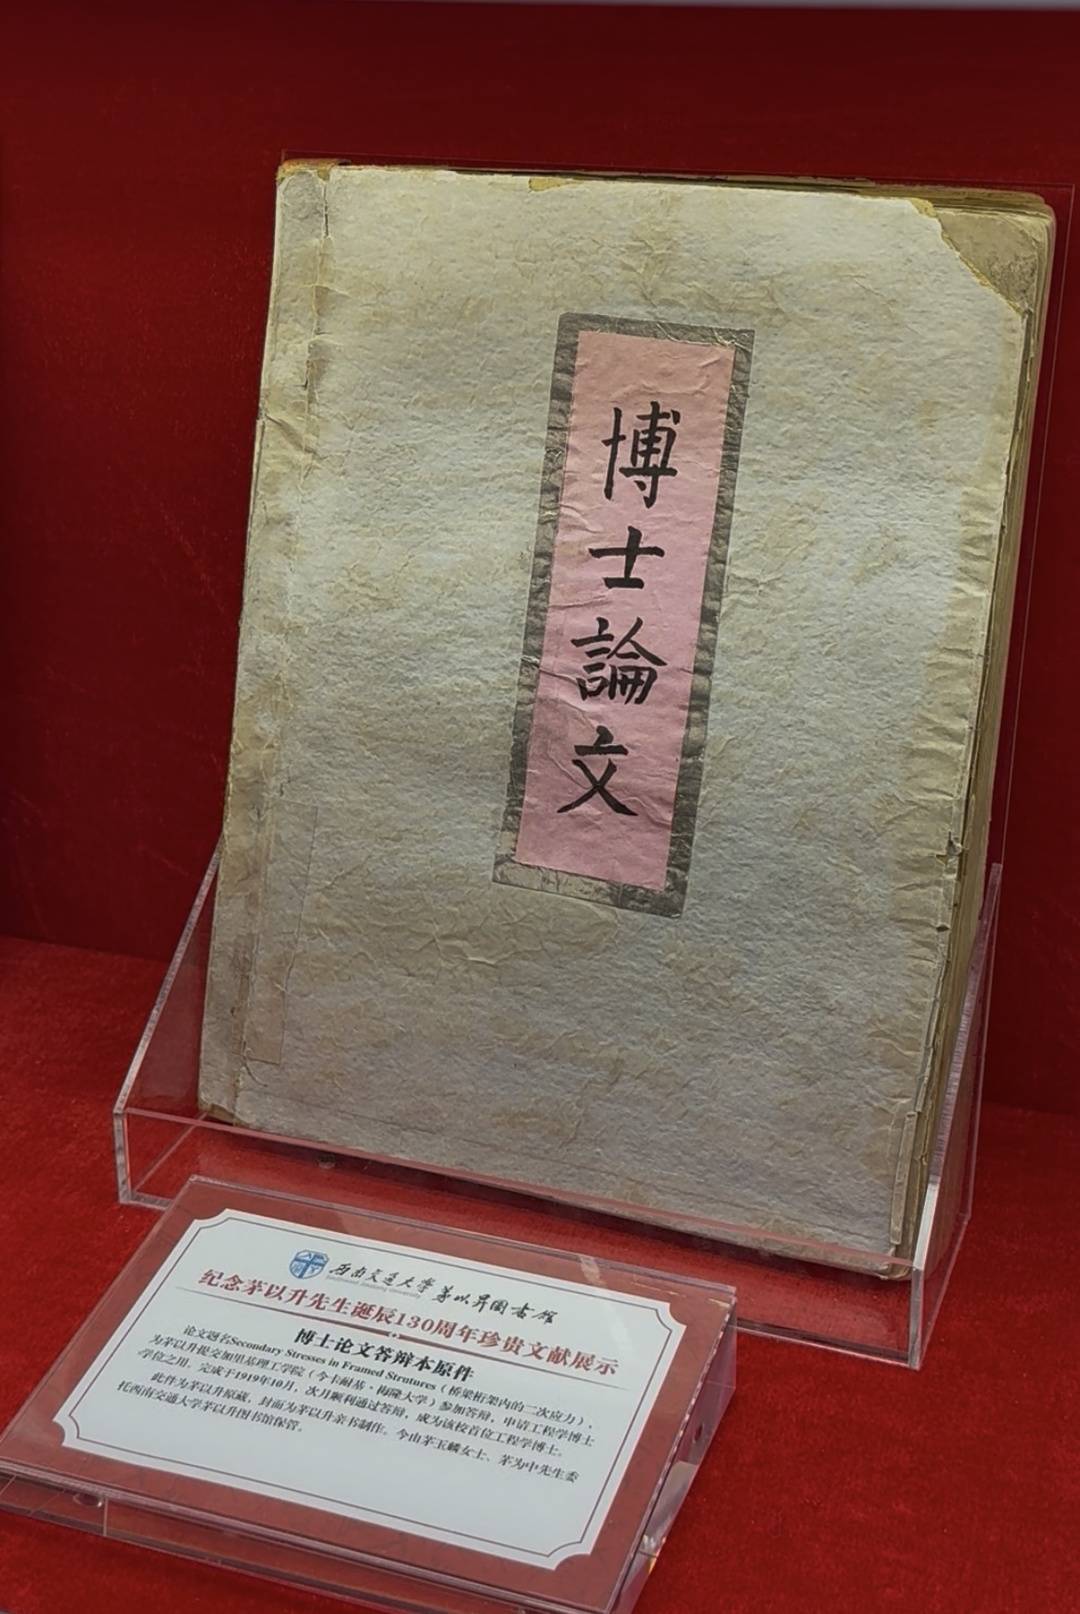 博士論文
西南交通大学 茅以昇图書館
纪念茅以升先生诞辰130周年珍贵文献展示
博士论文答辩本原件
论文题名Secondary Stresses in Framed Strutures（桥梁桁架内的二次应力），
为茅以升提交加里基理工学院（今卡耐基·梅隆大学）参加答辩，申请工程学博士
学位之用。完成于1919年10月，次月顺利通过答辩，成为该校首位工程学博士。
此件为茅以升原藏，封面为茅以升亲书制作。今由茅玉麟女士、茅为中先生委
托西南交通大学茅以升图书馆保管。